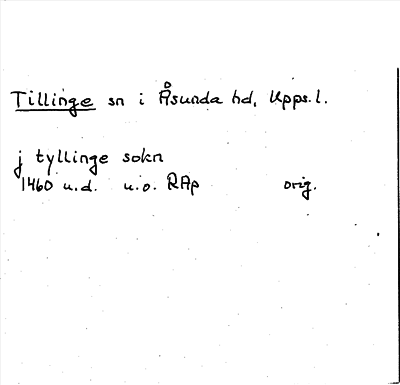 Tillinge sn i Åsunda hd, Upps. l.
j tyllinge sokn
1460 u.d. u.o. RAp orig.